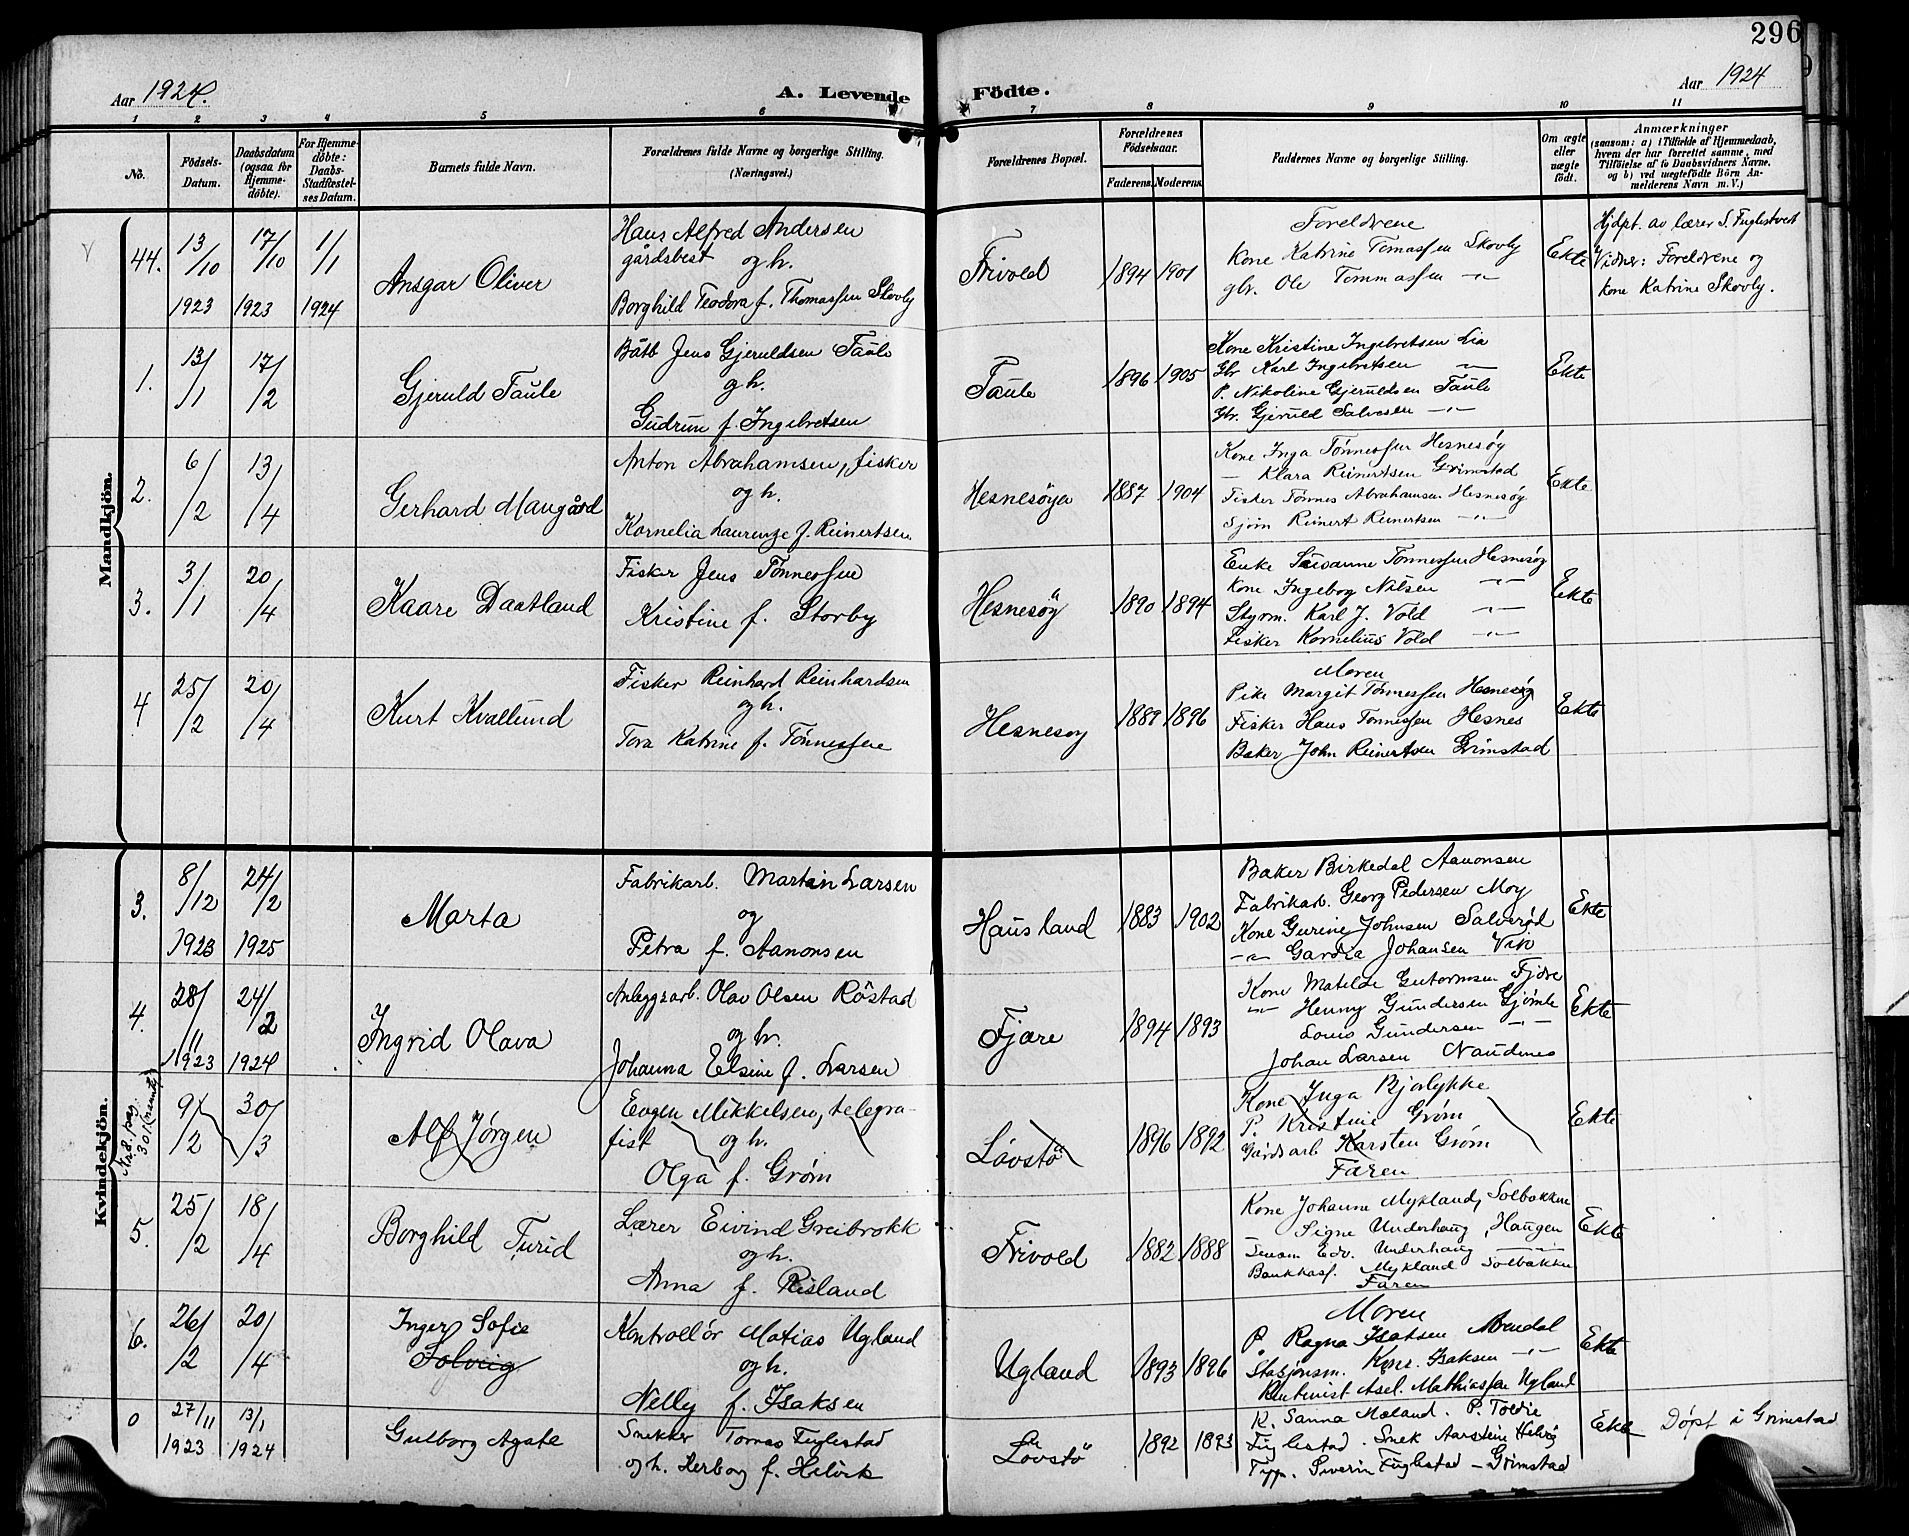 296
Aar 1924.
A. Levende Födte.
Aar 1924
1 2 3 4 5 6 7 8 9 10 11
No.
Födsels-
Datum.
Daabsdatum
(ogsaa for
Hjemme-
döbte).
For Hjemme-
döbte:
Daabs-
Stadfæstel-
ses Datum.
Barnets fulde Navn.
Forældrenes fulde Navne og borgerlige Stilling.
(Næringsvei.)
Forældrenes Bopæl.
Forældrenes
Födselsaar.
Faderens. Moderens.
Faddernes Navne og borgerlige Stilling.
Om ægte
eller
uægte
födt.
Anmærkninger
(saasom: a) i Tilfælde af Hjemmedaab,
hvem der har forrettet samme, med
Tilföielse af to Daabsvidners Navne.
og b) ved uægtefödte Börn An-
melderens Navn m. V.)
Mandkjön.
44.
13/10 1923
17/10 1923
1/1 1924
Ansgar Oliver
Hans Alfred Andersen
gårdsbest og h.
Borghild Teodora f. Thomassen Skovly
Frivold
1894 1901
Foreldrene
Kone Katrine Tomassen Skovly
gbr. Ole Tommassen -"-
Ekte
Hjdpt. av lærer S. Fuglestvedt
Vidner: Foreldrene og
kone Katrine Skovly.
1.
13/1
17/2
Gjeruld Taule
Båtb Jens Gjeruldsen Taule
og h.
Gudrun f. Ingebretsen
Taule
1896 1905
Kone Kristine Ingebretsen Lia
Gbr Karl Ingebretsen -"-
P. Nikoline Gjeruldsen Taule
Gbr. Gjeruld Salvesen -"-
Ekte
2.
6/2
13/4
Gerhard Maugård
Anton Abrahamsen, fisker
og h.
Kornelia Laurenze f. Reinertsen
Hesnesøya
1887 1904
Kone Inga Tønnessen Hesnesøy
- Klara Reinertsen Grimstad
Fisker Tønnes Abrahamsen Hesnesøy
Sjøm Reinert Reinertsen -"-
Ekte
3.
3/1
20/4
Kaare Daatland
Fisker Jens Tønnessen
Kristine f. Storby
Hesnesøy
1890 1894
Enke Susanne Tønnessen Hesnesøy
Kone Ingeborg Nilsen -"-
Styrm. Karl J. Vold -"-
Fisker Kornelius Vold -"-
Ekte
4
25/2
20/4
Kurt Kvallund
Fisker Reinhard Reinhardsen
og h.
Tora Katrine f. Tønnessen
Hesnesøy
1889 1896
Moren
Pike Margit Tønnessen Hesnesøy
Fisker Hans Tønnessen Hesnes
Baker John Reinertsen Grimstad
Ekte
Kvindekjön.
3.
8/12 1923
24/2 1925
Marta
Fabrikarb. Martin Larsen
og
Petra f. Aanonsen
Hausland
1883 1902
Baker Birkedal Aanonsen
Fabrikarb. Georg Pedersen Moy
Kone Gurine Johnsen Salverød
-"- Gardia Johansen Vik
Ekte
4.
28/11 1923
24/2 1924
Ingrid Olava
Anleggsarb. Olav Olsen Röstad
og h.
Johanna Elsine f. Larsen
Fjære
1894 1893
Kone Matilde Gutormsen Fjære
-"- Henny Gundersen Gjømle
Louis Gundersen -"-
Johan Larsen Naudenes
Ekte
Nr. 8. pag.
301 (nemlig)
9/2
30/3
Alf Jørgen
Eugen Mikkelsen, telegra-
fist og h.
Olga f. Grøm
Lövstö
1896 1892
Kone Inga Bjorlykke
P. Kristine Grøm
Gårdsarb Karsten Grøm
Faren
Ekte
5.
25/2
18/4
Borghild Turid
Lærer Eivind Greibrokk
og h.
Anna f. Risland
Frivold
1882 1888
Kone Johanne Mykland, Solbakken
Signe Underhaug, Haugen
Edv. Underhaug -"-
Bankkass. Mykland Solbakken
Faren
Ekte
6.
26/2
20/4
Inger Sofie
Solveig
Kontrollör Matias Ugland
og h.
Nelly f. Isaksen
Ugland
1893 1896
Moren
P. Ragna Isaksen Arendal
Stasjonsm. Konr. Isaksen -"-
Aksel. Mathiassen Ugland
Ekte
0
27/11 1923
13/1 1924
Gulborg Agate
Snekker Tomas Fuglestad
og h. Herborg f. Helvik
Lövstö
1892 1893
K. Sanna Mæland. P. Toldie
Fuglestad. Snek Aarstein Helvig
Typ. Siverin Fuglestad - Grimstad
Ekte
Döpt i Grimstad